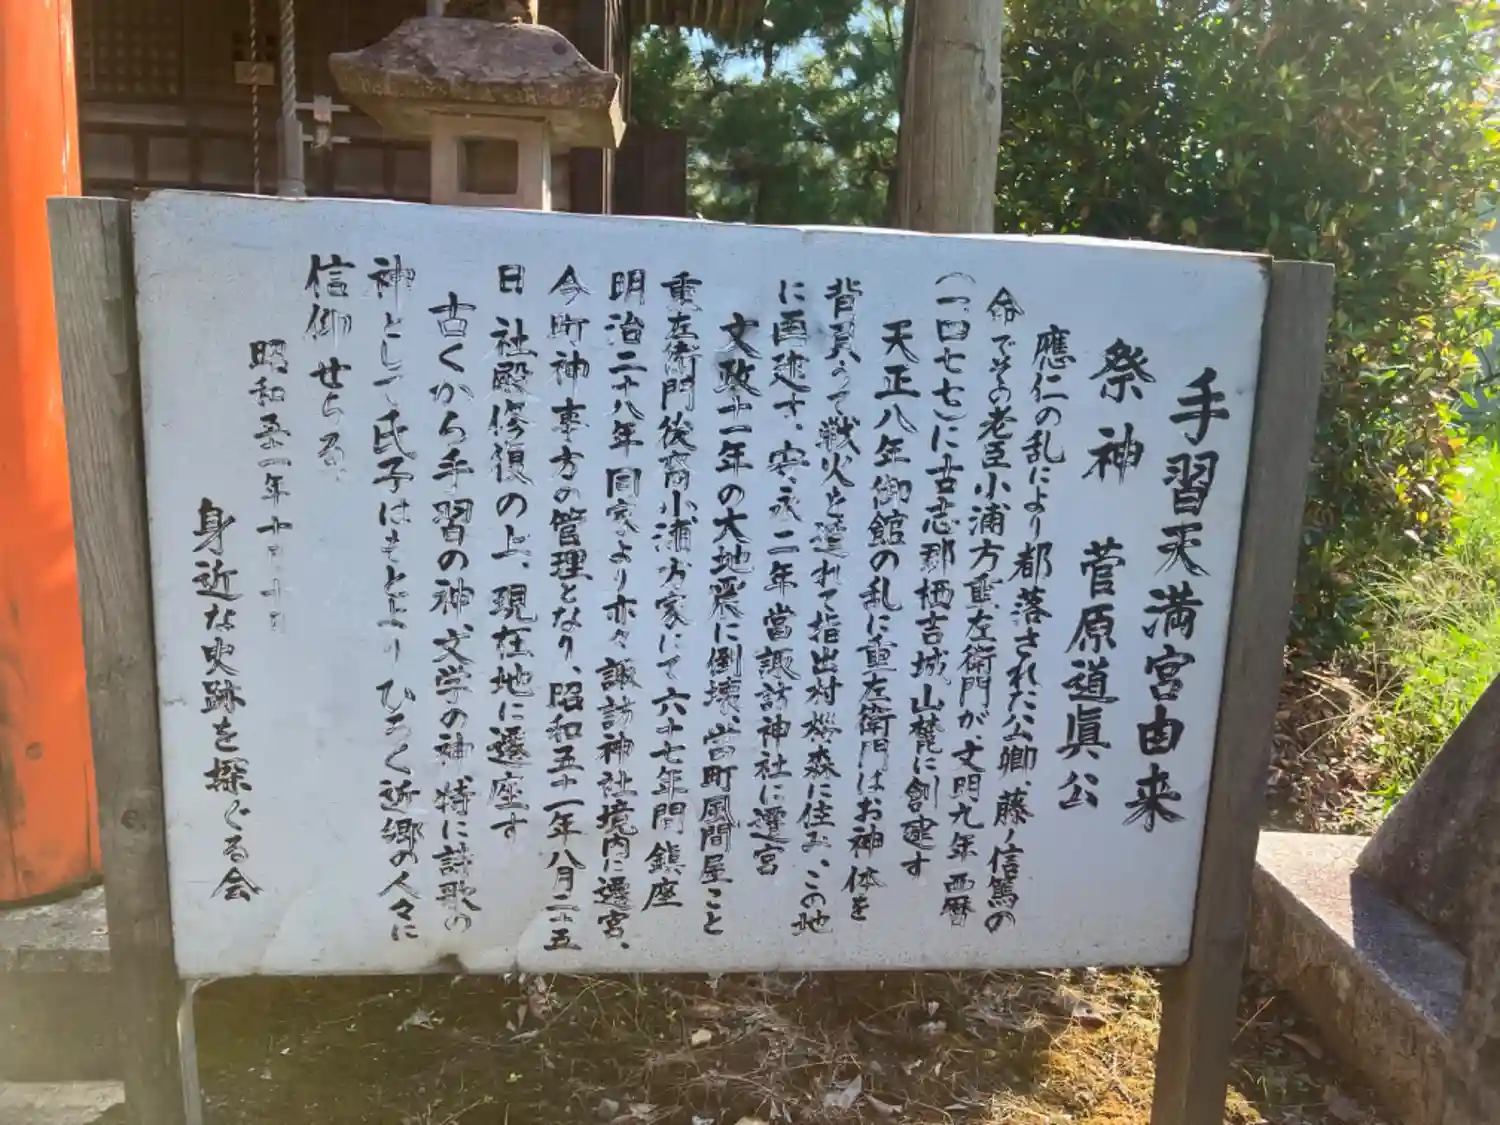 手習天満宮由来
祭神　菅原道眞公
應仁の乱により都落された公卿、藤ノ信篤の
命でその老臣小浦方重左衛門が、文明九年西暦
(一四七七)に古志郡栖吉城山麓に創建す
天正八年御館の乱に重左衛門はお神体を
背負って戦火を遁れて指出村櫻森に住み、この地
に再建す、安永二年當諏訪神社に遷宮
文政十一年の大地震に倒壊、当町風間屋こと
重左衛門後裔小浦方家にて六十七年間鎮座
明治二十八年同家より亦々諏訪神社境内に遷宮、
今町神事方の管理となり、昭和五十一年八月二十五
日社殿修復の上、現在地に遷座す
古くから手習の神、文学の神、特に詩歌の
神として氏子はもとよりひろく近郷の人々に
信仰せらる、
昭和五十一年十月十日
身近な史跡を探ぐる会